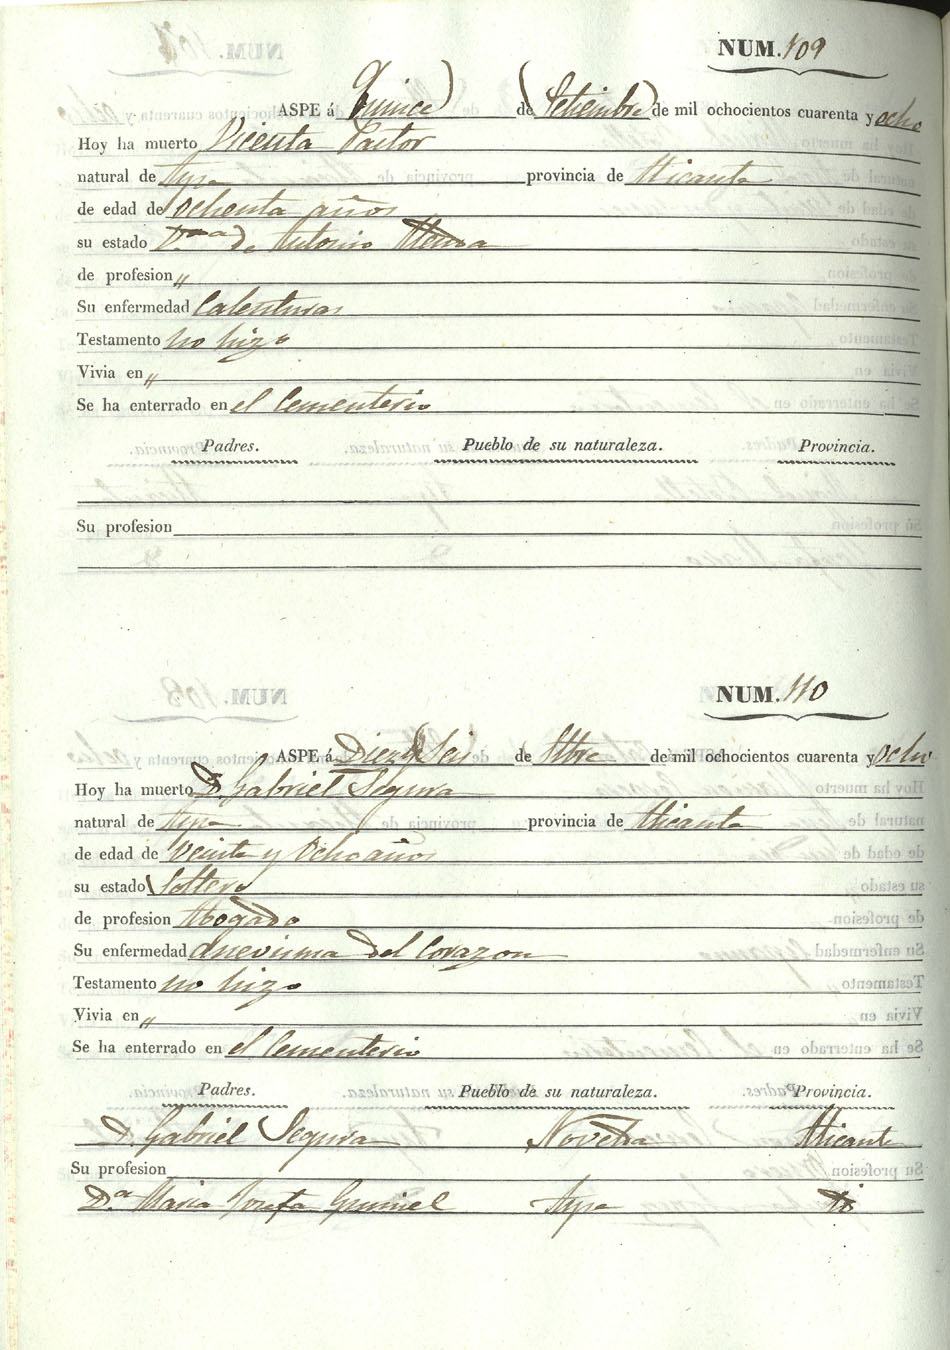 NUM. 109
ASPE á Quince de Setiembre de mil ochocientos cuarenta y ocho
Hoy ha muerto Vicenta Pastor
natural de Aspe provincia de Alicante
de edad de ochenta años
su estado V.da de Antonio
de profesion „
Su enfermedad Calenturas
Testamento no hizo
Vivia en „
Se ha enterrado en el Cementerio
Padres. Pueblo de su naturaleza. Provincia.
Su profesion
NUM. 110
ASPE á Diez y Seis de Stbre de mil ochocientos cuarenta y ocho
Hoy ha muerto D. Gabriel Segura
natural de Aspe provincia de Alicante
de edad de Veinte y Ocho años
su estado Soltero
de profesion Abogado
Su enfermedad Aneurisma del Corazon
Testamento no hizo
Vivia en „
Se ha enterrado en el Cementerio
Padres. Pueblo de su naturaleza. Provincia.
D. Gabriel Segura Novelda Alicante
Su profesion
D.a Maria Josefa Aspe